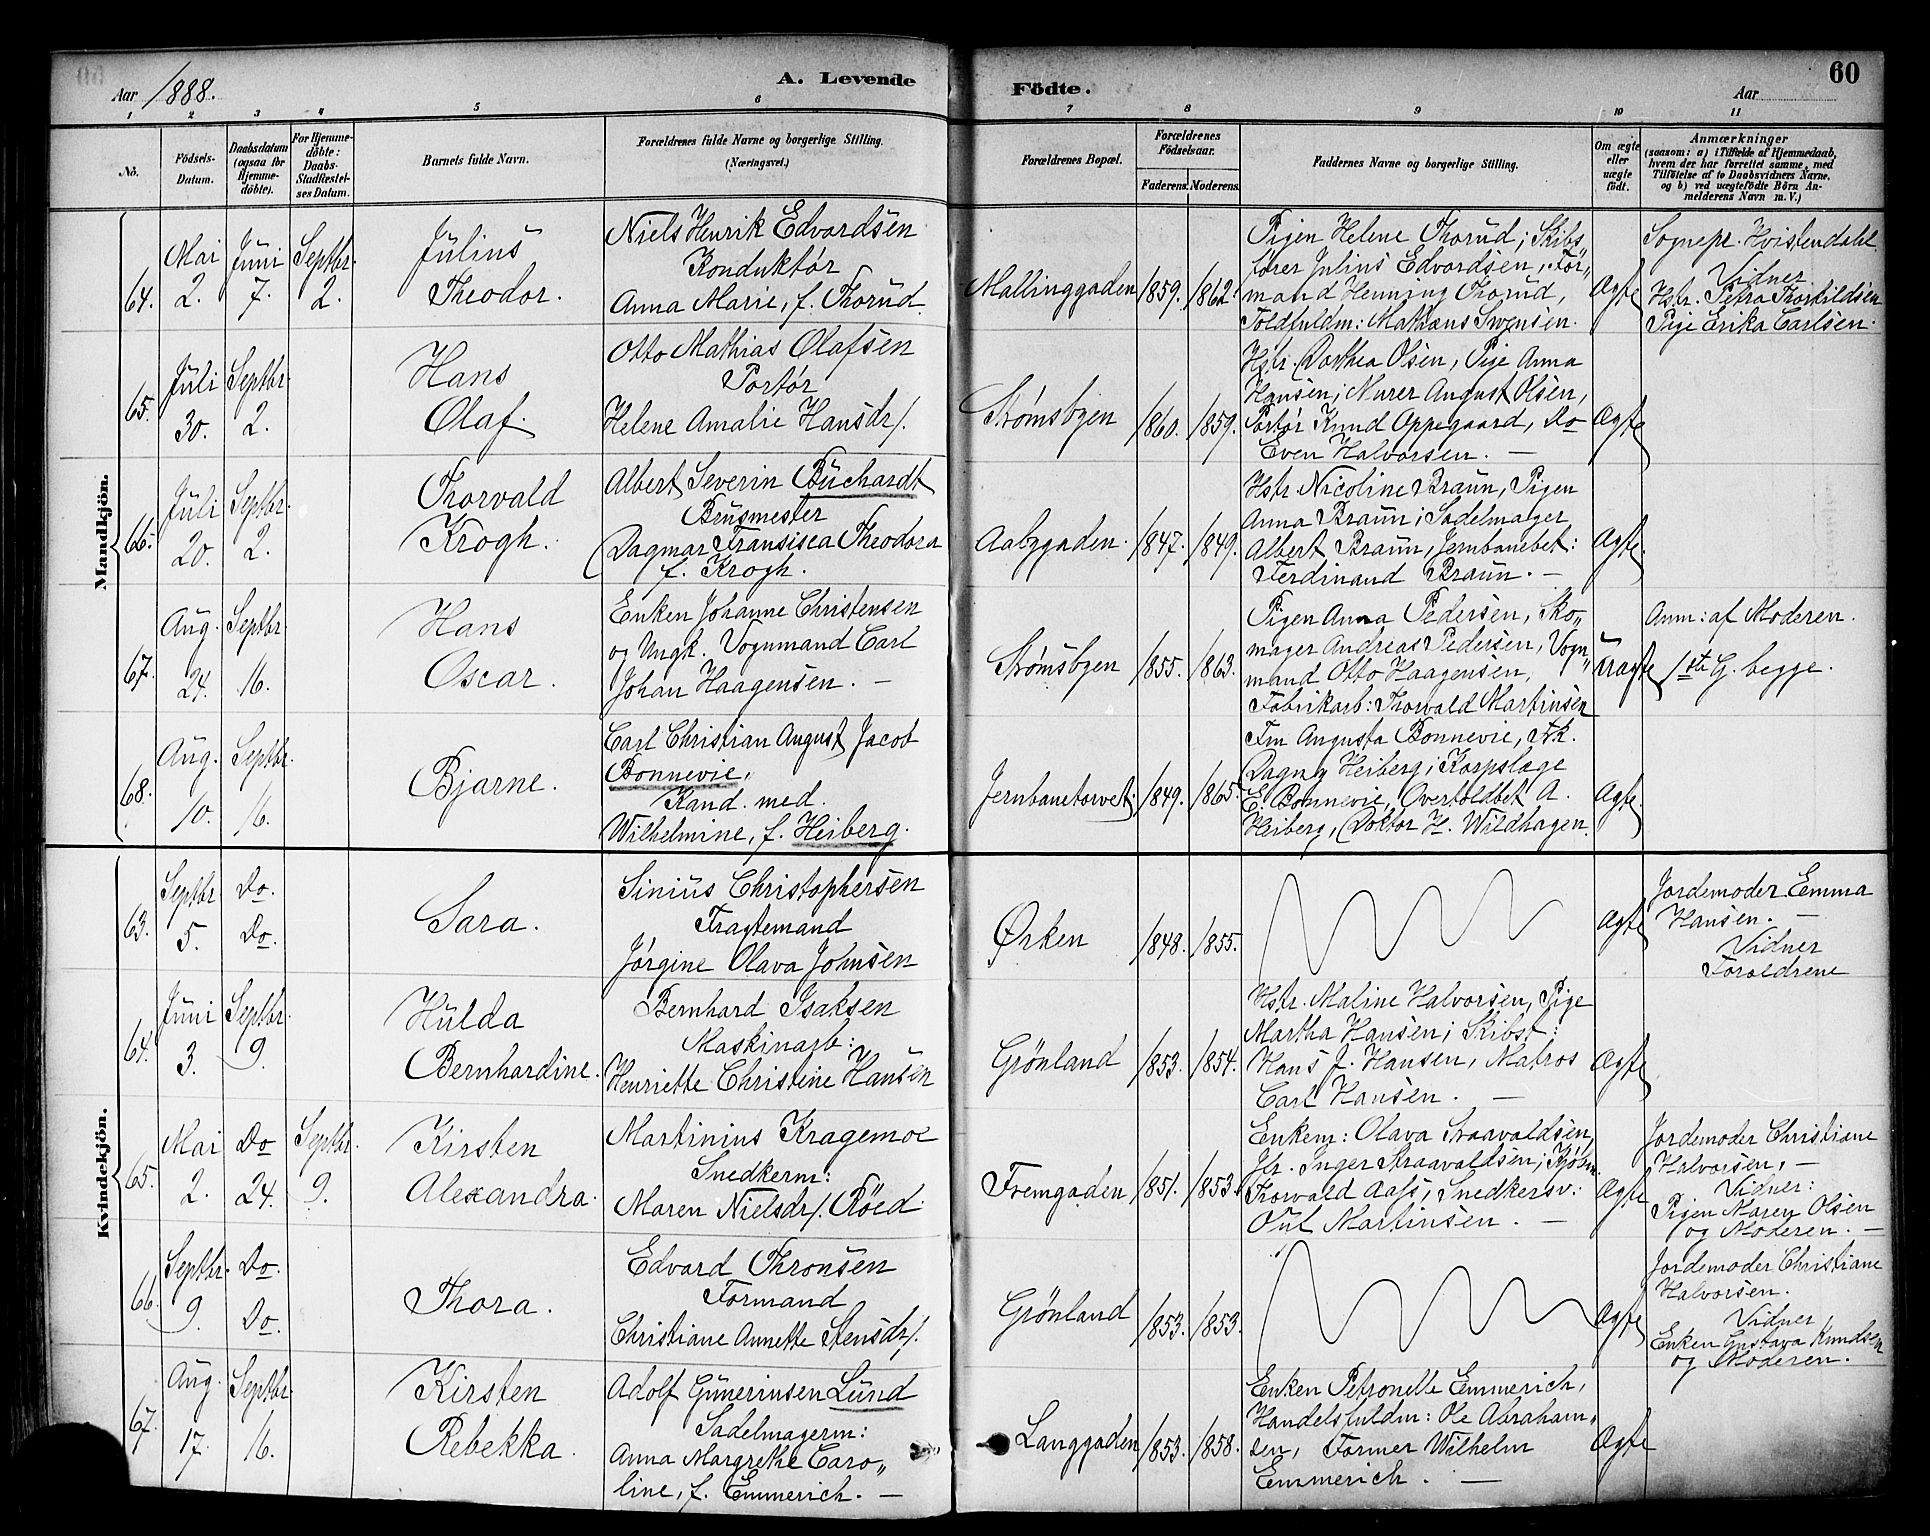 Aar 1888.
A. Levende
Födte.
60
Aar
1 2 3 4 5 6 7 8 9 10 11
No.
Födsels-
Datum.
Daabsdatum
(ogsaa for
Hjemme-
döbte).
For Hjemme-
döbte:
Daabs-
Stadfæstel-
ses Datum.
Barnets fulde Navn.
Forældrenes fulde Navne og borgerlige Stilling.
(Næringsvei.)
Forældrenes Bopæl.
Forældrenes
Födselsaar.
Faderens. Moderens.
Faddernes Navne og borgerlige Stilling.
Om ægte
eller
uægte
födt.
Anmærkninger
(saasom: a) i Tilfælde af Hjemmedaab,
hvem der har forrettet samme, med
Tilföielse af to Daabsvidners Navne,
og b) ved uægtefödte Börn An-
melderens Navn m. V.)
Mandkjön.
64.
Mai
2.
Juni
7.
Septbr.
2.
Julius
Theodor.
Niels Henrik Edvardsen
Konduktør
Anna Marie, f. Thorud.
Mallinggaden
1859. 1862.
Pigen Helene Thorud; Skibs„
fører Julius Edvardsen, For„
mand Henning Thorud,
Toldfuldm: Mathæus Svensen.
Ægte
Sognepr. Hvistendahl
Vidner
Hstr. Petra Thorkildsen
Pige Erika Carlsen.
65.
Juli
30.
Septbr.
2.
Hans
Olaf.
Otto Mathias Olafsen
Portør
Helene Amalie Hansdr/.
Strømsbyen
1860. 1859.
Hstr. Dorthea Olsen, Pige Anna
Hansen; Murer August Olsen,
Portør Knud Oppegaard, Do
Even Halvorsen. —
Ægte
66.
Juli
20.
Septbr.
2.
Thorvald
Krogh.
Albert Severin Buchardt
Brugsmester
Dagmar Fransisca Theodora
f. Krogh.
Aabygaden.
1847. 1849.
Hstr. Nicoline Braun, Pigen
Anna Braun; Sadelmager
Albert Braun, Jernbanebet:
Ferdinand Braun. —
Ægte.
67.
Aug.
24.
Septbr.
16.
Hans
Oscar.
Enken Johanne Christensen
og Ungk. Vognmand Carl
Johan Haagensen. —
Strømsbyen
1855. 1863.
Pigen Anna Pedersen, Sko„
mager Andreas Pedersen, Vogn„
mand Otto Haagensen,
Fabrikarb: Thorvald Martinsen
Uægte
Anm: af Moderen.
1ste G. begge.
68.
Aug.
10.
Septbr.
16.
Bjarne.
Carl Christian August Jacob
Bonnevie,
Kand. med.
Wilhelmine, f. Heiberg.
Jernbanetorvet.
1849. 1865.
Fru Augusta Bonnevie, Frk.
Dagny Heiberg; Korpslæge
E. Bonnevie, Overtoldbet A.
Heiberg, Doktor H. Wildhagen.
Ægte.
Kvindekjön.
63.
Septbr
5.
Do.
Do.
Sara.
Sinius Christophersen
Fragtemand
Jørgine Olava Johnsen
Ørken
1848. 1855.
Ægte
Jordemoder Emma
Hansen. —
Vidner
Forældrene
64.
Juni
3.
Septbr.
9.
Hulda
Bernhardine.
Bernhard Isaksen
Maskinarb:
Henriette Christine Hansen
Grønland
1853. 1854.
Hstr. Maline Halvorsen, Pige
Martha Hansen; Skibst:
Hans J. Hansen, Matros
Carl Hansen. —
Ægte
65.
Mai
2.
Do
24.
Septbr.
9.
Kirsten
Alexandra.
Martinius Kragemoe
Snedkerm:
Maren Nielsdr/. Röed.
Fremgaden
1851. 1853.
Enkem: Olava Straavaldsen,
Jfr. Inger Straavaldsen; Kjøbm.
Thorvald Aass, Snedkersv:
Oul Martinsen. —
Ægte
Jordemoder Christiane
Halvorsen, —
Vidner:
Pigen Maren Olsen
og Moderen. —
66.
Septbr.
9.
Do.
Do.
Thora.
Edvard Thronsen
Formand
Christiane Annette Stensdr/.
Grönland
1853. 1853.
Ægte
Jordemoder Christiane
Halvorsen.
Vidner
Enken Gustava Knudsen
og Moderen.
67.
Aug.
17.
Septbr.
16.
Kirsten
Rebekka.
Adolf Gunerinsen Lund
Sadelmagerm:
Anna Margrethe Caro„
line, f. Emmerich. —
Langgaden
1853. 1858.
Enken Petronelle Emmerich,
Handelsfuldm: Ole Abraham„
sen, Former Wilhelm
Emmerich. —
Ægte